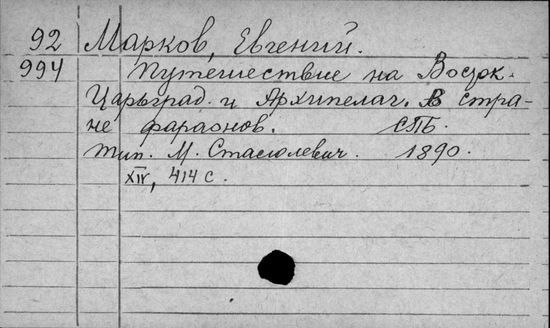 92 Марков, Евгений.
994 Путешествие на Восток.
Царьград и Архипелаг. В стра-
не фараонов. СПБ.
тип. М. Стасюлевич. 1890.
XIV, 414 с.